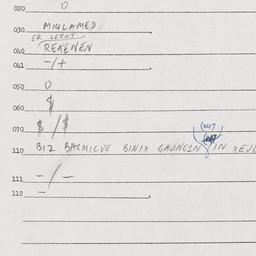 020 0
030 MIQLAMED
ER LERNT
040 REKENEN
041 -/+
050 0
060 $
070 $/$
110 BIZ BARMICVE BINIX GAUNGIN IN XEJ
111 -/-
112 -